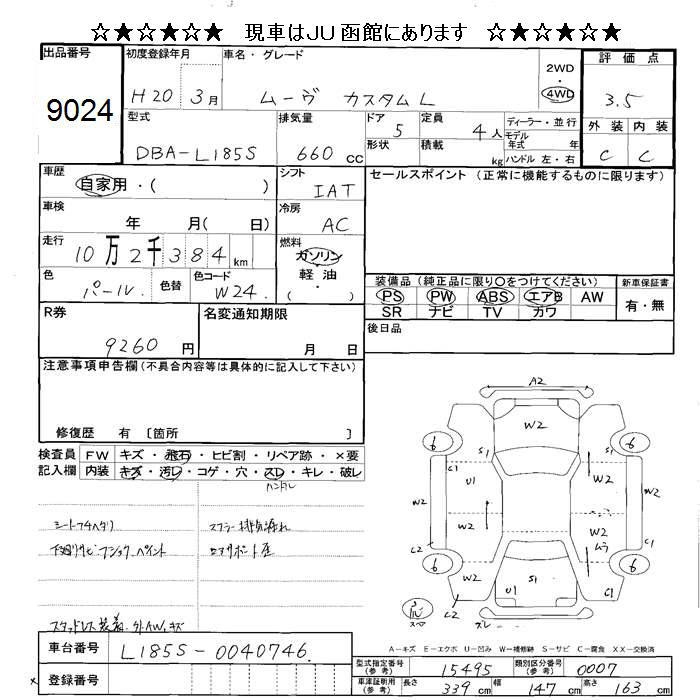 ☆★☆★☆★ 現車はJU函館にあります ☆★☆★☆★
出品番号 初度登録年月 車名・グレード 評価点
9024 H20 3月 ムーヴ カスタムL 2WD・4WD 3.5
型式 排気量 ドア 定員 ディーラー・並行 外装 内装
DBA-L185S 660cc 5 4人 モデル年式 年 C C
形状 積載 kg ハンドル 左・右
車歴 自家用・( ) シフト IAT セールスポイント (正常に機能するものに限ります)
車検 年 月( 日) 冷房 AC
走行 10万2千384km 燃料 ガソリン・軽油・( )
色 パール 色替 色コード W24 装備品 (純正品に限り○をつけてください) 新車保証書
PS PW ABS エアB AW 有・無
SR ナビ TV カワ
R券 9260円 名変通知期限 月 日 後日品
注意事項申告欄 (不具合内容等は具体的に記入して下さい)
修復歴 有 〔箇所 〕
検査員記入欄 FW キズ・飛石・ヒビ割・リペア跡・×要
内装 キズ・汚レ・コゲ・穴・スレ・キレ・破レ
ハンドル
シートフチヘタリ マフラー排気漏れ
下廻りサビ フック、ペイント
スタッドレス装着 外AW、キズ
A2
W2
6 S1 S1 6
C1 U1 W2
W2 W2 W2 ムラ W2
C2 C1
6 W2 W2 6
C2 U1 S1 C1
スペア ズレ
A-キズ E-エクボ U-凹み W-補修跡 S-サビ C-腐食 XX-交換済
車台番号 L185S-0040746
登録番号
型式指定番号(参考) 15495 類別区分番号(参考) 0007
車庫証明用(参考) 長さ 339cm 幅 147cm 高さ 163cm